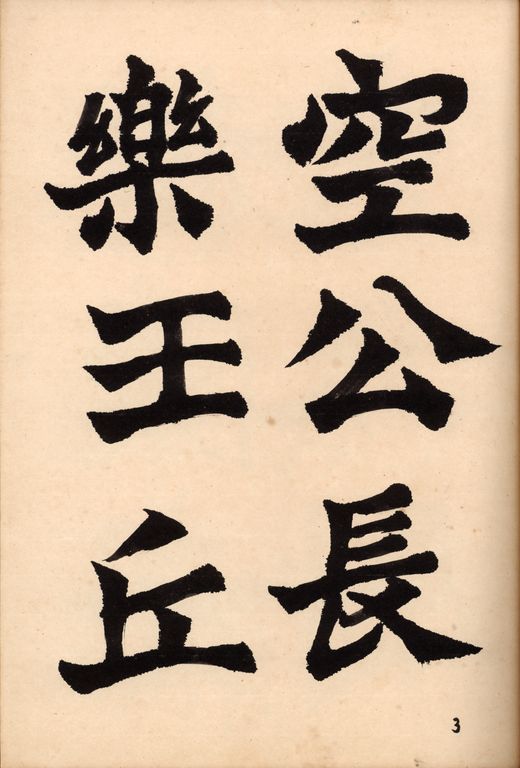 空公長
樂王丘
3